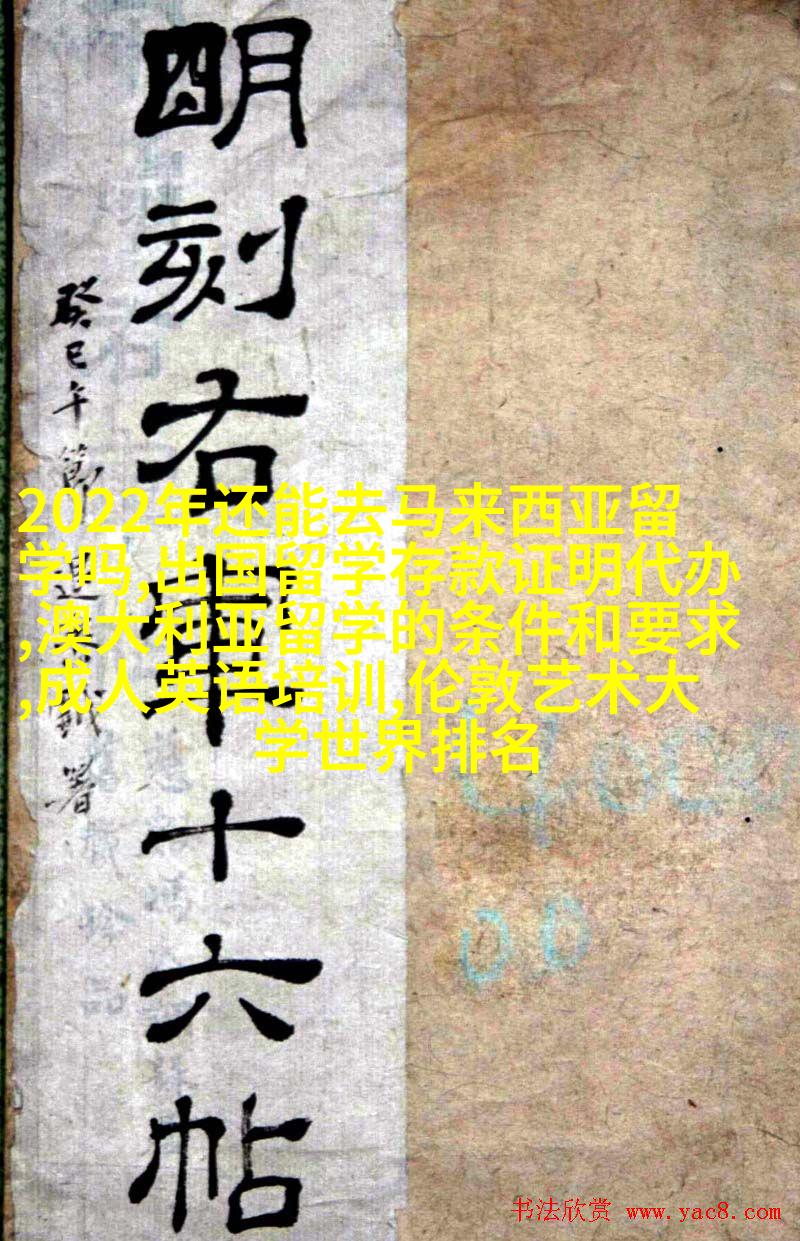 朙刻右軍十六帖
癸巳午節 署
2022年还能去马来西亚留
学吗,出国留学存款证明代办
,澳大利亚留学的条件和要求
,成人英语培训,伦敦艺术大
学世界排名
书法欣赏 www.yac8.com